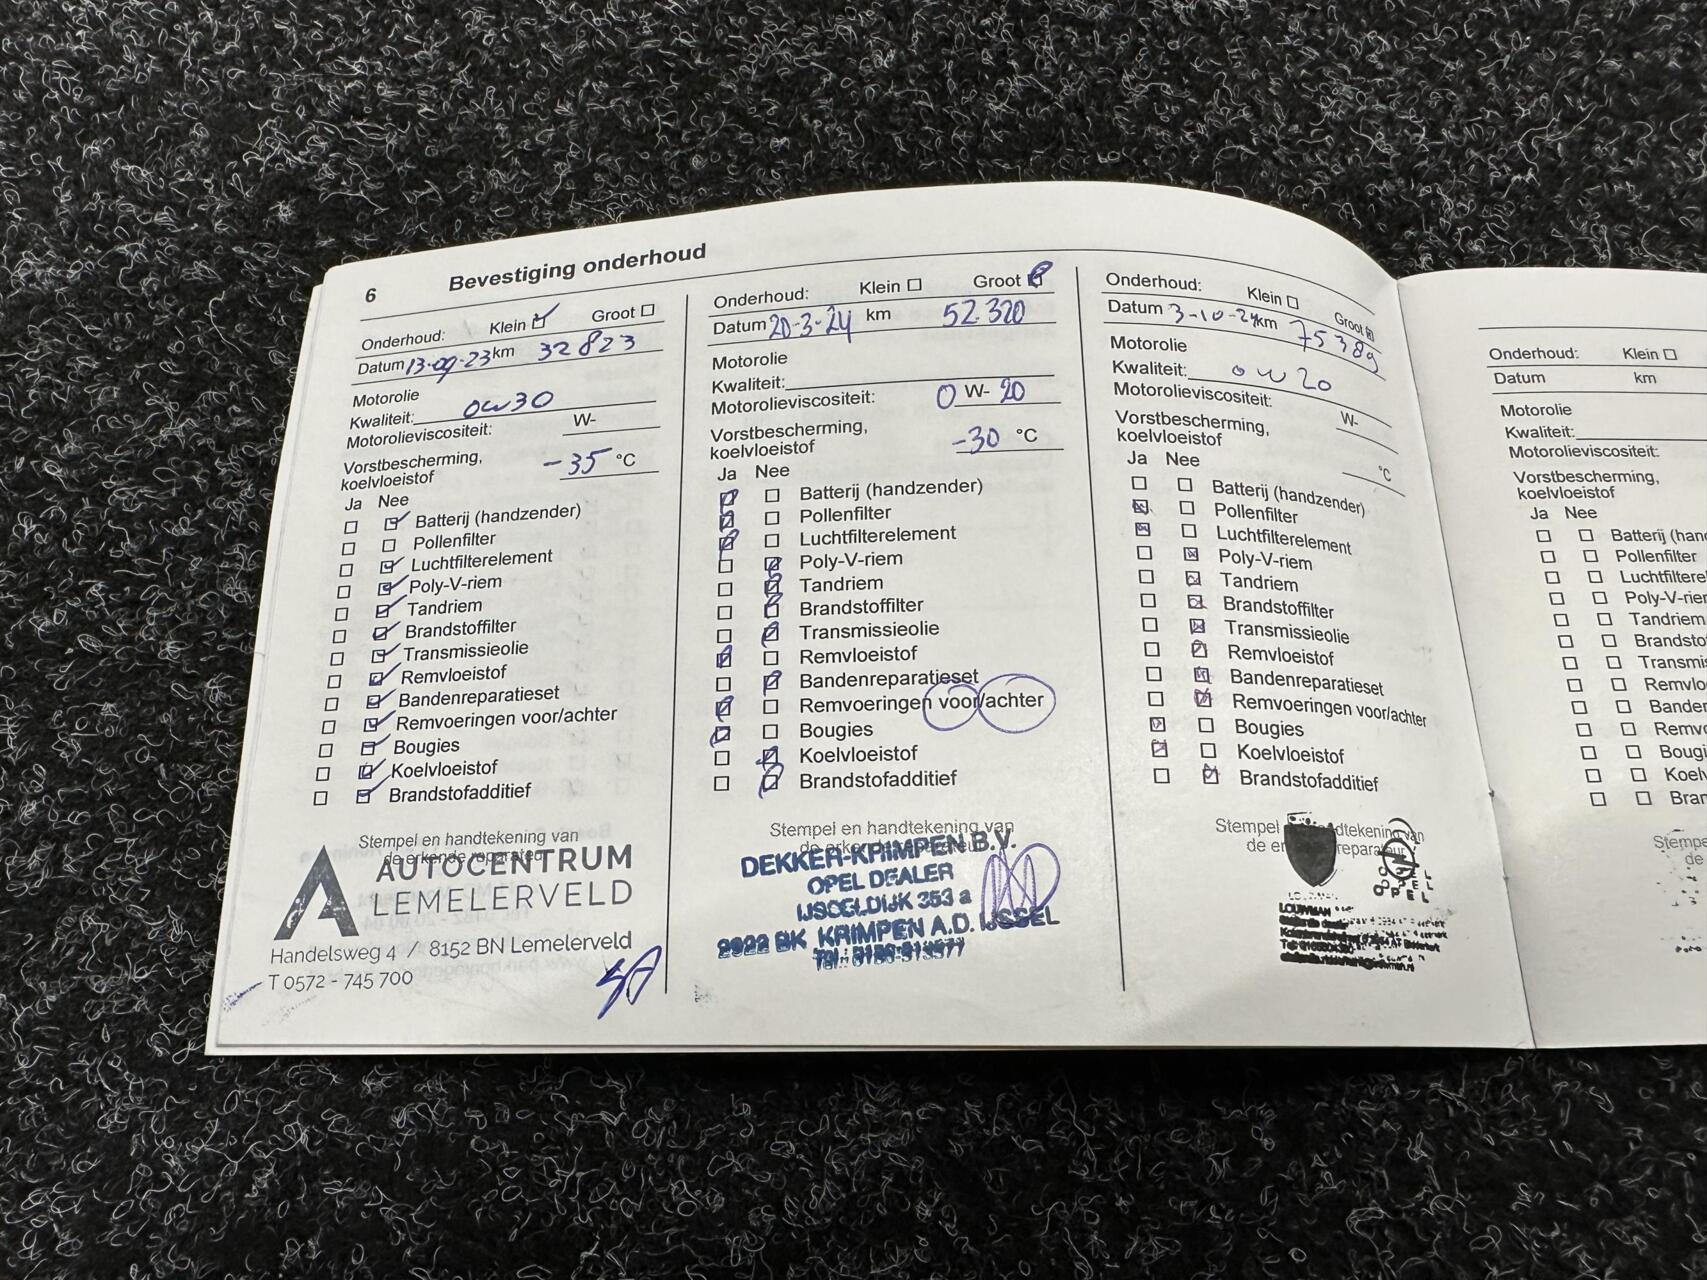 6 Bevestiging onderhoud
Onderhoud: Klein Groot
Datum 13-09-23 km 32823
Motorolie
Kwaliteit: 0w30
Motorolieviscositeit: W-
Vorstbescherming,
koelvloeistof -35 °C
Ja Nee
Batterij (handzender)
Pollenfilter
Luchtfilterelement
Poly-V-riem
Tandriem
Brandstoffilter
Transmissieolie
Remvloeistof
Bandenreparatieset
Remvoeringen voor/achter
Bougies
Koelvloeistof
Brandstofadditief
Stempel en handtekening van
de erkende reparateur
AUTOCENTRUM
LEMELERVELD
Handelsweg 4 / 8152 BN Lemelerveld
T 0572 - 745 700
Onderhoud: Klein Groot
Datum 20-3-24 km 52.320
Motorolie
Kwaliteit:
Motorolieviscositeit: 0 W- 20
Vorstbescherming,
koelvloeistof -30 °C
Ja Nee
Batterij (handzender)
Pollenfilter
Luchtfilterelement
Poly-V-riem
Tandriem
Brandstoffilter
Transmissieolie
Remvloeistof
Bandenreparatieset
Remvoeringen voor/achter
Bougies
Koelvloeistof
Brandstofadditief
Stempel en handtekening van
de erkende reparateur
DEKKER-KRIMPEN B.V.
OPEL DEALER
IJSSELDIJK 353 a
2922 BK KRIMPEN A.D. IJSSEL
Tel.: 0180-513577
Onderhoud: Klein Groot
Datum 3-10-24 km 75389
Motorolie
Kwaliteit: 0w20
Motorolieviscositeit: W-
Vorstbescherming,
koelvloeistof °C
Ja Nee
Batterij (handzender)
Pollenfilter
Luchtfilterelement
Poly-V-riem
Tandriem
Brandstoffilter
Transmissieolie
Remvloeistof
Bandenreparatieset
Remvoeringen voor/achter
Bougies
Koelvloeistof
Brandstofadditief
Stempel handtekening van
de er reparateur
OPEL
LOUWMAN
Onderhoud: Klein
Datum km
Motorolie
Kwaliteit:
Motorolieviscositeit:
Vorstbescherming,
koelvloeistof
Ja Nee
Batterij (hand
Pollenfilter
Luchtfiltere
Poly-V-rier
Tandriem
Brandsto
Transmis
Remvlo
Banden
Remvo
Bougi
Koelv
Bran
Stempe
de